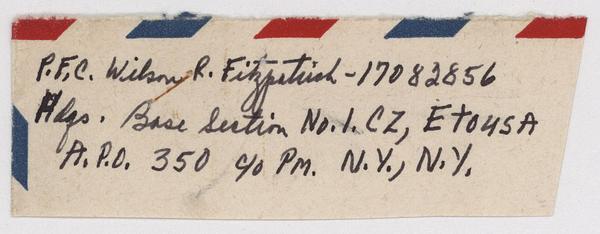 P.F.C. Wilson R. Fitzpatrick - 17082856
Hdqs. Base Section No. 1. CZ, ETOUSA
A.P.O. 350 c/o PM. N.Y., N.Y.